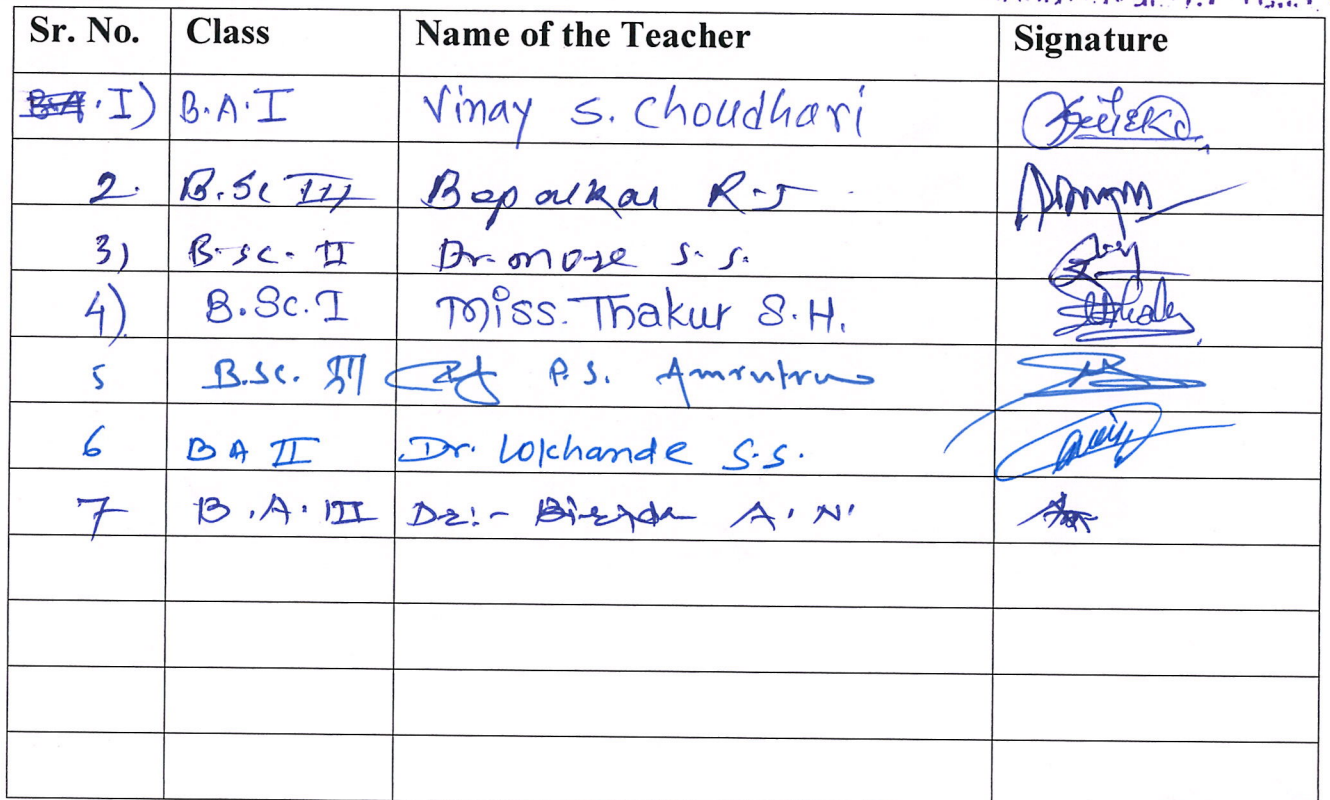 Sr. No. Class Name of the Teacher Signature
I) B.A.I Vinay S. Choudhari
2. B.Sc III Bopalkar R.J.
3) B.sc. II Dr. more S.S.
4) B.Sc.I Miss. Thakur S.H.
5 B.Sc. III P.S. Amrutrao
6 BA II Dr. Lokhande S.S.
7 B.A.III Dr:- A.N.